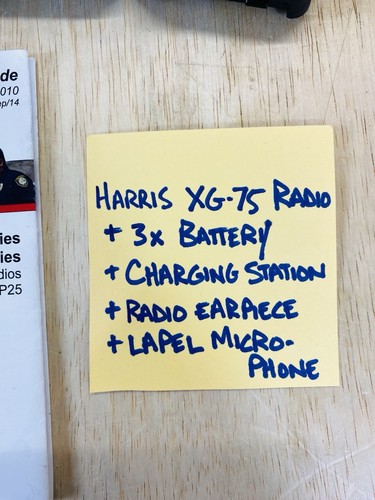 de
010
ep/14
ies
ies
dios
P25
HARRIS XG-75 RADIO
+ 3x BATTERY
+ CHARGING STATION
+ RADIO EARPIECE
+ LAPEL MICRO-
PHONE